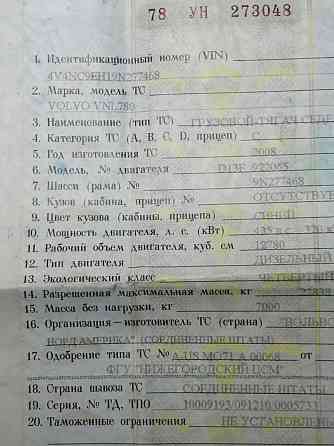 78 УН 273048
1. Идентификационный номер (VIN)
4V4NC9EH19N277468
2. Марка, модель ТС
VOLVO VNL780
3. Наименование (тип ТС) ГРУЗОВОЙ-ТЯГАЧ СЕДЕ
4. Категория ТС (А, В, С, D, прицеп) C
5. Год изготовления ТС 2008
6. Модель, № двигателя D13F 922085
7. Шасси (рама) № 9N277468
8. Кузов (кабина, прицеп) № ОТСУТСТВУЕ
9. Цвет кузова (кабины, прицепа) СИНИЙ
10. Мощность двигателя, л. с. (кВт) 435 л.с.
11. Рабочий объем двигателя, куб. см 12780
12. Тип двигателя ДИЗЕЛЬНЫЙ
13. Экологический класс ЧЕТВЕРТЫЙ
14. Разрешенная максимальная масса, кг
15. Масса без нагрузки, кг 7000
16. Организация—изготовитель ТС (страна) "ВОЛЬВО
НОРД АМЕРИКА" (СОЕДИНЕННЫЕ ШТАТЫ)
17. Одобрение типа ТС № A-US.MO71.A.00068 от
ФГУ "НИЖЕГОРОДСКИЙ ЦСМ"
18. Страна вывоза ТС СОЕДИНЕННЫЕ ШТАТЫ
19. Серия, № ТД, ТПО 10009193/091210/0005733
20. Таможенные ограничения НЕ УСТАНОВЛЕН